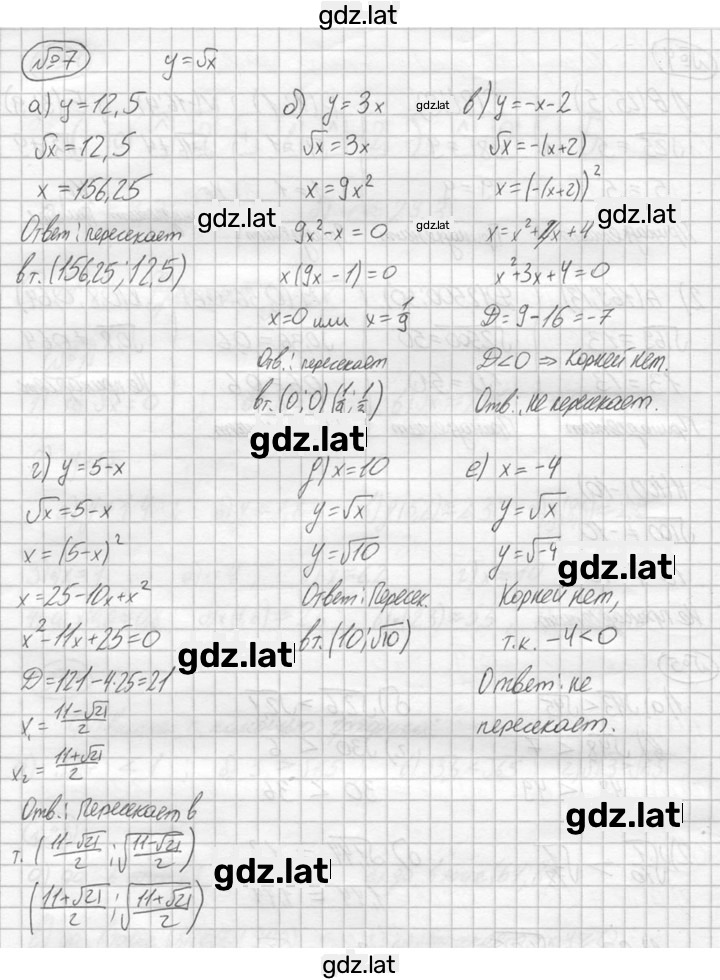 gdz.lat
№7 y=√x
а) y=12,5
√x=12,5
x=156,25
Ответ: пересекает
в т. (156,25; 12,5)
б) y=3x
√x=3x
x=9x²
9x²-x=0
x(9x-1)=0
x=0 или x=1/9
Отв.: пересекает
в т. (0;0)
gdz.lat
в) y=-x-2
√x=-(x+2)
x=(-(x+2))²
x=x²+4x+4
x²+3x+4=0
D=9-16=-7
D<0 ⇒ Корней нет.
Отв.: не пересекает.
gdz.lat
gdz.lat
gdz.lat
gdz.lat
г) y=5-x
√x=5-x
x=(5-x)²
x=25-10x+x²
x²-11x+25=0
D=121-4·25=21
x₁=(11-√21)/2
x₂=(11+√21)/2
Отв.: Пересекает в
т. ((11-√21)/2; √((11-√21)/2))
((11+√21)/2; √((11+√21)/2))
д) x=10
y=√x
y=√10
Ответ: Пересек.
в т. (10; √10)
е) x=-4
y=√x
y=√-4
Корней нет,
т.к. -4<0
Ответ: не
пересекает.
gdz.lat
gdz.lat
gdz.lat
gdz.lat
gdz.lat
gdz.lat